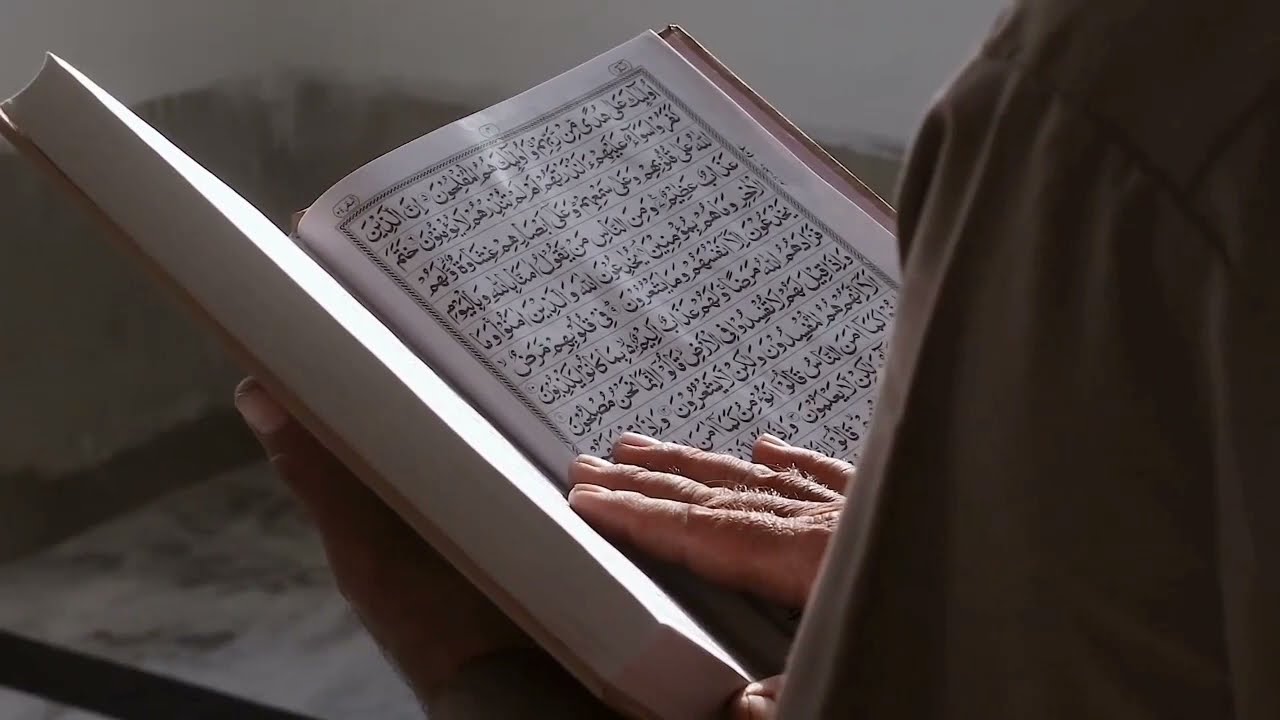 أُولَٰئِكَ عَلَىٰ هُدًى مِنْ رَبِّهِمْ وَأُولَٰئِكَ هُمُ الْمُفْلِحُونَ إِنَّ الَّذِينَ
كَفَرُوا سَوَاءٌ عَلَيْهِمْ ءَأَنْذَرْتَهُمْ أَمْ لَمْ تُنْذِرْهُمْ لَا يُؤْمِنُونَ خَتَمَ
اللَّهُ عَلَىٰ قُلُوبِهِمْ وَعَلَىٰ سَمْعِهِمْ وَعَلَىٰ أَبْصَارِهِمْ غِشَاوَةٌ وَلَهُمْ
عَذَابٌ عَظِيمٌ وَمِنَ النَّاسِ مَنْ يَقُولُ آمَنَّا بِاللَّهِ وَبِالْيَوْمِ
الْآخِرِ وَمَا هُمْ بِمُؤْمِنِينَ يُخَادِعُونَ اللَّهَ وَالَّذِينَ آمَنُوا وَمَا
يَخْدَعُونَ إِلَّا أَنْفُسَهُمْ وَمَا يَشْعُرُونَ فِي قُلُوبِهِمْ مَرَضٌ
فَزَادَهُمُ اللَّهُ مَرَضًا وَلَهُمْ عَذَابٌ أَلِيمٌ بِمَا كَانُوا يَكْذِبُونَ
وَإِذَا قِيلَ لَهُمْ لَا تُفْسِدُوا فِي الْأَرْضِ قَالُوا إِنَّمَا نَحْنُ مُصْلِحُونَ
أَلَا إِنَّهُمْ هُمُ الْمُفْسِدُونَ وَلَٰكِنْ لَا يَشْعُرُونَ وَإِذَا
كَمَا آمَنَ النَّاسُ قَالُوا أَنُؤْمِنُ كَمَا آمَنَ
وَلَٰكِنْ لَا يَعْلَمُونَ وَإِذَا
قَالُوا